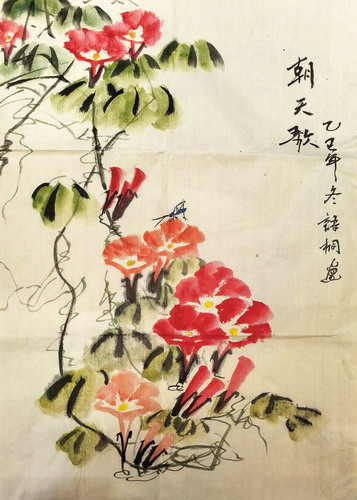 朝天歌
乙巳年冬語桐畫